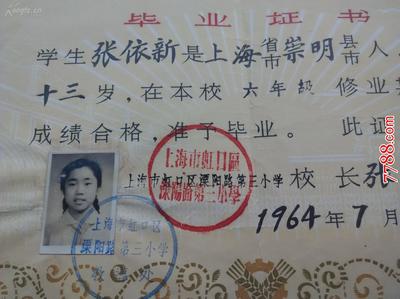 毕业证书
学生张依新是上海省市崇明县市人
十三岁，在本校六年级修业
成绩合格，准予毕业。此证
上海市虹口区溧阳路第三小学校长张
1964年7月
上海市虹口區
溧陽路第三小學
上海市虹口区
溧阳路第三小学
7788.com